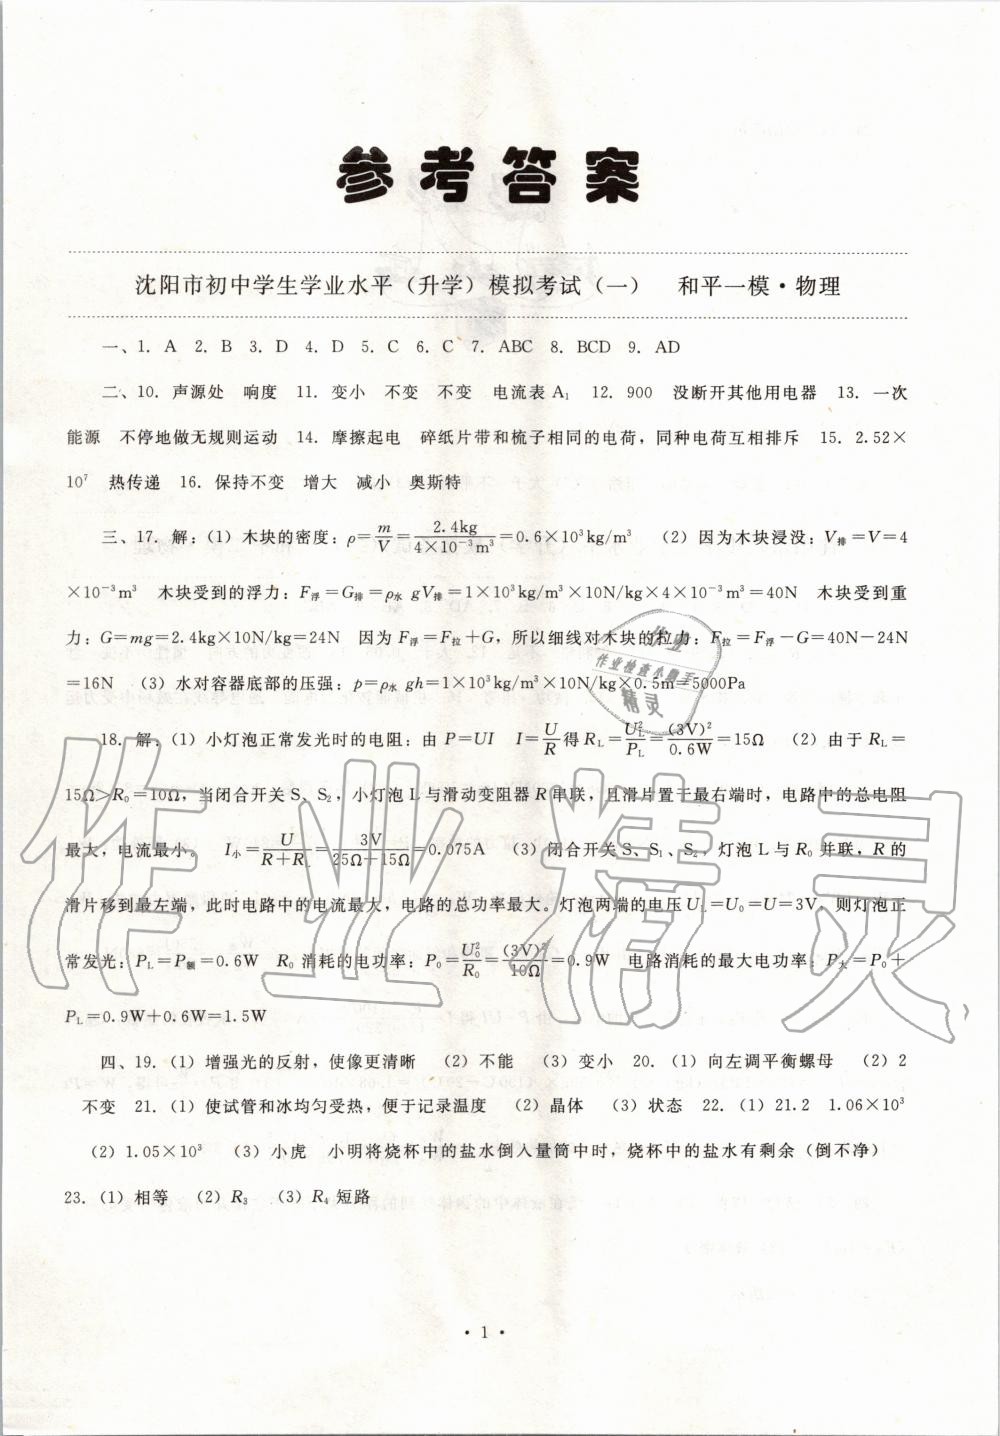 参考答案
沈阳市初中学生学业水平（升学）模拟考试（一） 和平一模·物理
一、1. A 2. B 3. D 4. D 5. C 6. C 7. ABC 8. BCD 9. AD
二、10. 声源处 响度 11. 变小 不变 不变 电流表 A₁ 12. 900 没断开其他用电器 13. 一次
能源 不停地做无规则运动 14. 摩擦起电 碎纸片带和梳子相同的电荷，同种电荷互相排斥 15. 2.52×
10⁷ 热传递 16. 保持不变 增大 减小 奥斯特
三、17. 解：(1) 木块的密度：ρ=m/V=2.4kg/4×10⁻³m³=0.6×10³kg/m³ (2) 因为木块浸没：V排=V=4
×10⁻³m³ 木块受到的浮力：F浮=G排=ρ水gV排=1×10³kg/m³×10N/kg×4×10⁻³m³=40N 木块受到重
力：G=mg=2.4kg×10N/kg=24N 因为 F浮=F拉+G，所以细线对木块的拉力：F拉=F浮-G=40N-24N
=16N (3) 水对容器底部的压强：p=ρ水gh=1×10³kg/m³×10N/kg×0.5m=5000Pa
18. 解：(1) 小灯泡正常发光时的电阻：由 P=UI I=U/R 得 R_L=U_L²/P_L=(3V)²/0.6W=15Ω (2) 由于 R_L=
15Ω>R₀=10Ω，当闭合开关 S、S₂，小灯泡 L 与滑动变阻器 R 串联，且滑片置于最右端时，电路中的总电阻
最大，电流最小。 I小=U/R+R_L=3V/25Ω+15Ω=0.075A (3) 闭合开关 S、S₁、S₂，灯泡 L 与 R₀ 并联，R 的
滑片移到最左端，此时电路中的电流最大，电路的总功率最大。灯泡两端的电压 U_L=U₀=U=3V，则灯泡正
常发光：P_L=P额=0.6W R₀ 消耗的电功率：P₀=U₀²/R₀=(3V)²/10Ω=0.9W 电路消耗的最大电功率：P大=P₀+
P_L=0.9W+0.6W=1.5W
四、19. (1) 增强光的反射，使像更清晰 (2) 不能 (3) 变小 20. (1) 向左调平衡螺母 (2) 2
不变 21. (1) 使试管和冰均匀受热，便于记录温度 (2) 晶体 (3) 状态 22. (1) 21.2 1.06×10³
(2) 1.05×10³ (3) 小虎 小明将烧杯中的盐水倒人量筒中时，烧杯中的盐水有剩余（倒不净）
23. (1) 相等 (2) R₃ (3) R₄ 短路
· 1 ·
作业
作业检查小助手
精灵
作业精灵